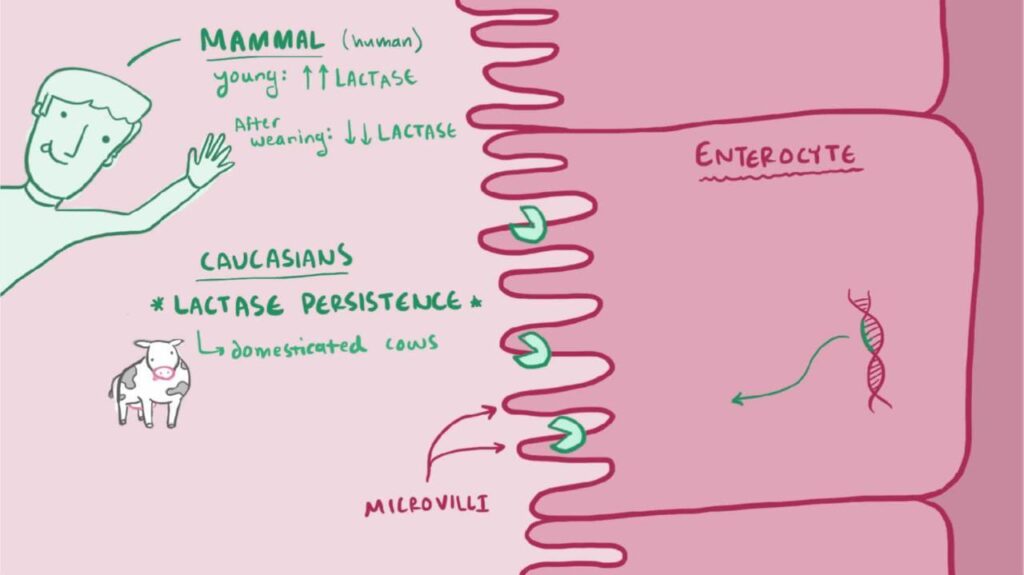 MAMMAL (human)
young: ↑↑ LACTASE
After
weaning: ↓↓ LACTASE
ENTEROCYTE
CAUCASIANS
* LACTASE PERSISTENCE *
domesticated cows
MICROVILLI